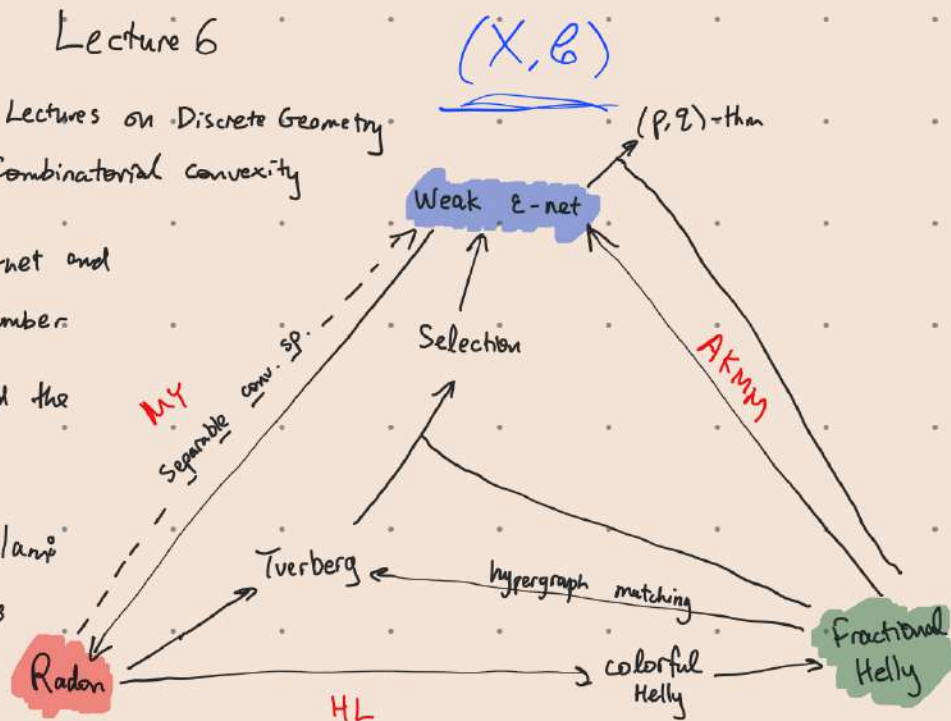 Lecture 6
(X, C)
Lectures on Discrete Geometry
Combinatorial convexity
(p,q)-thm
Weak ε-net
net and
number
Selection
AKMM
the
MY
Separable conv. sp.
Tverberg
hypergraph matching
Radon
HL
colorful
Helly
Fractional
Helly